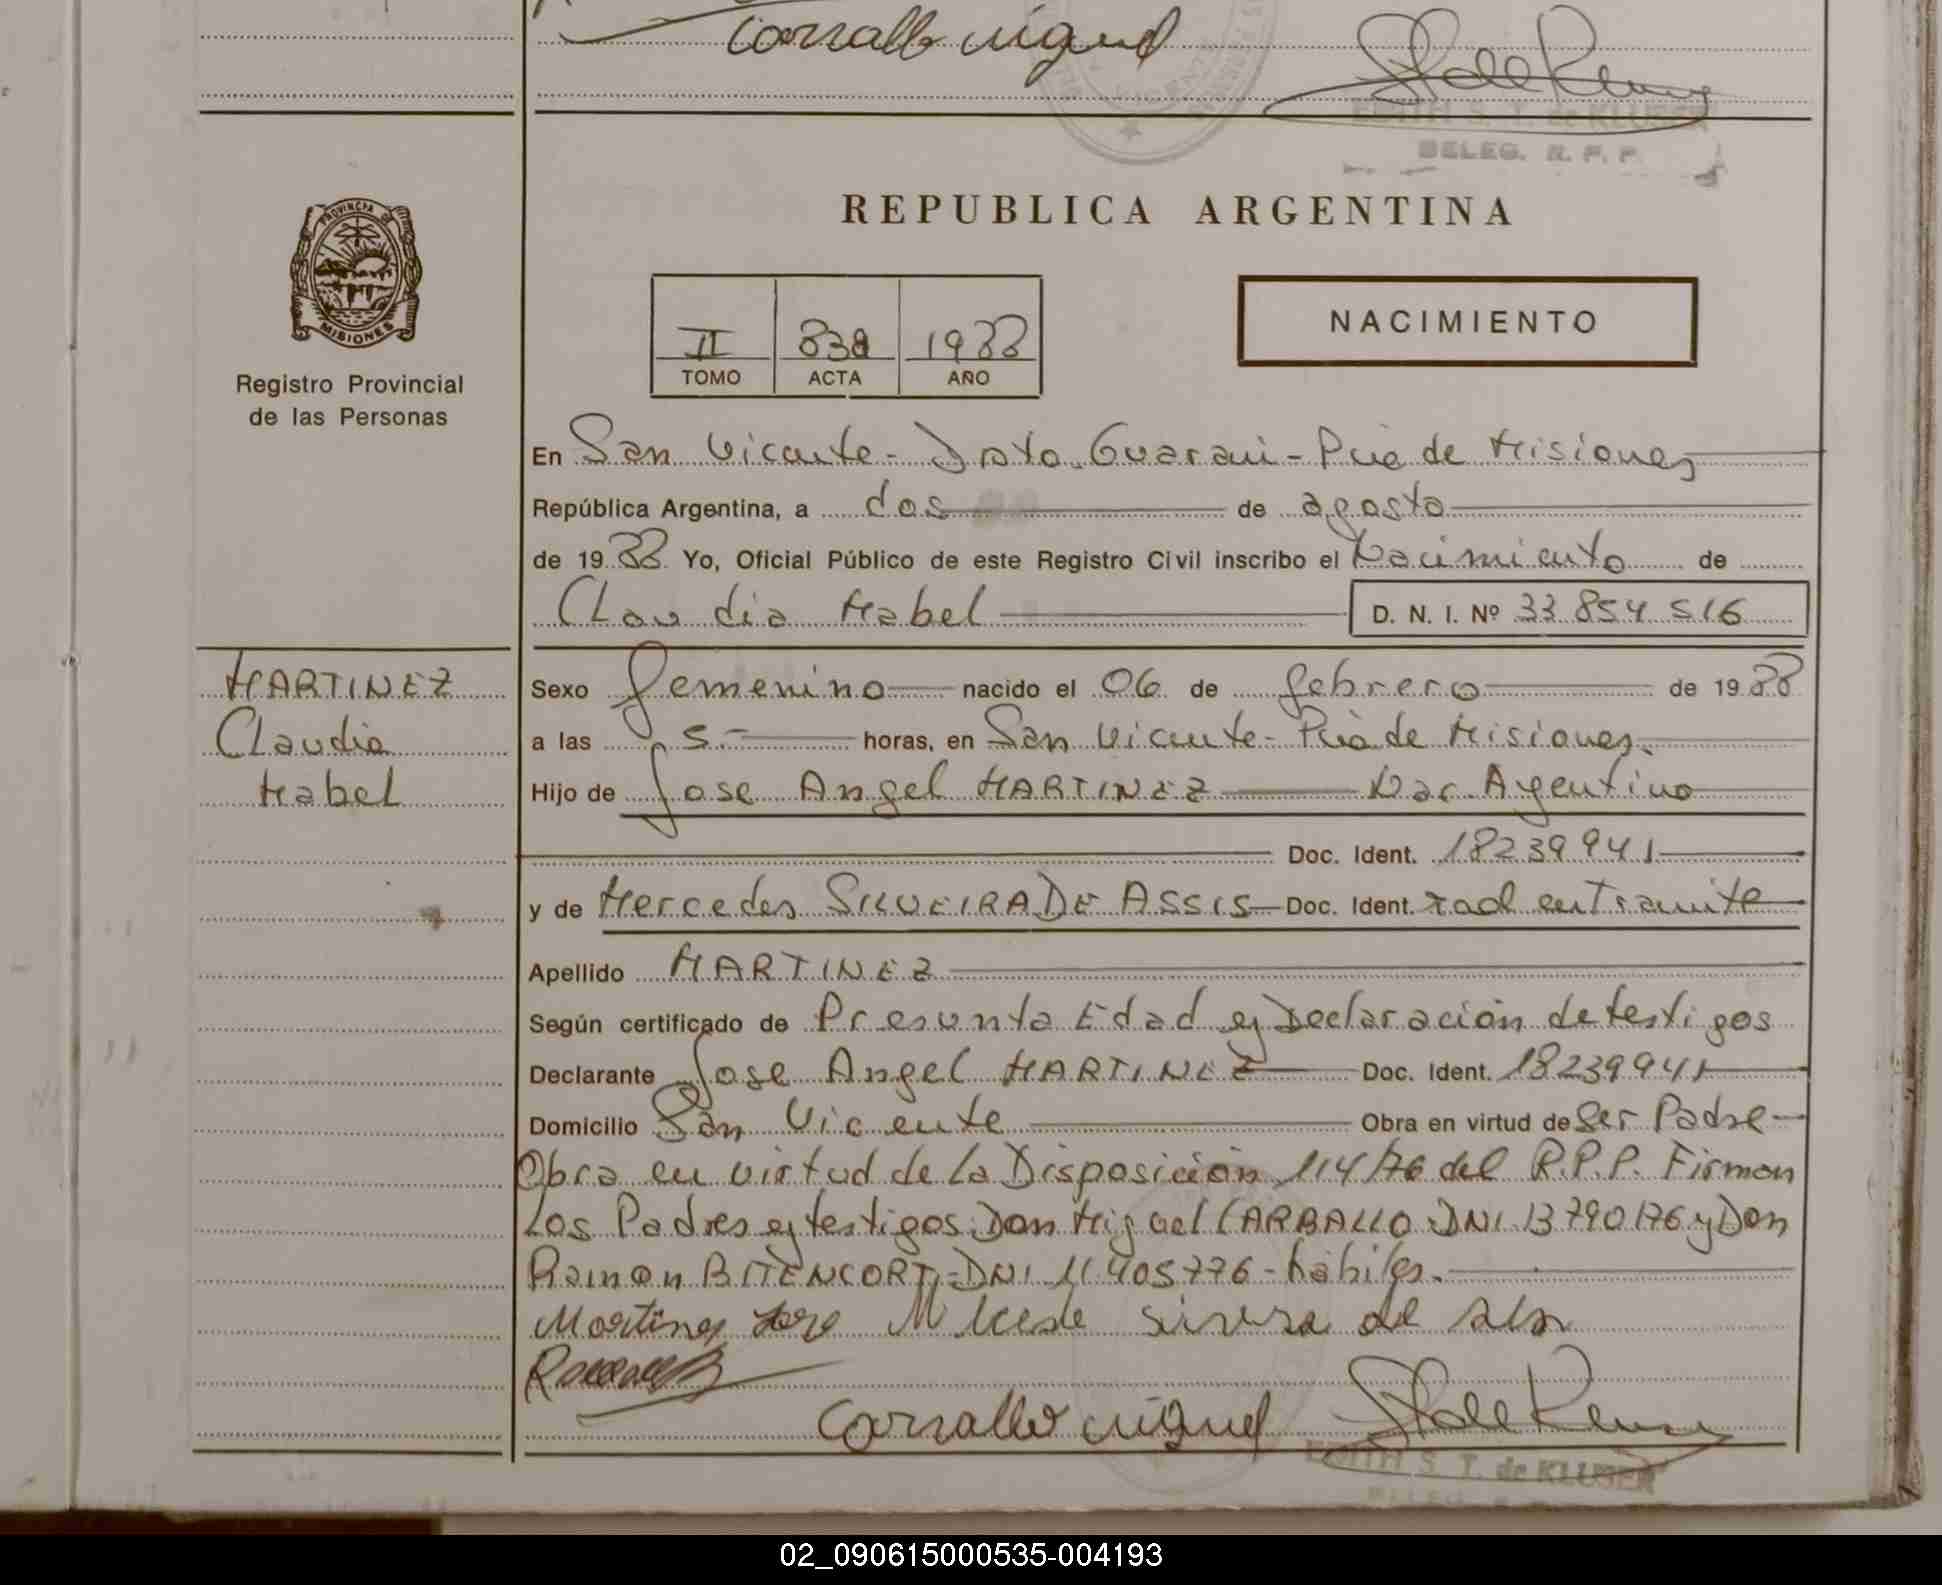 Carvallo Miguel
EDITH S. T. de KLUSER
DELEG. R. P. P.
PROVINCIA DE
MISIONES
Registro Provincial
de las Personas
REPUBLICA ARGENTINA
II
TOMO
ACTA
1988
AÑO
NACIMIENTO
En San Vicente - Dpto. Guarani - Pcia de Misiones
República Argentina, a dos de agosto
de 1988 Yo, Oficial Público de este Registro Civil inscribo el Nacimiento de
Claudia Mabel D. N. I. Nº 33.854.516
MARTINEZ
Claudia
Mabel
Sexo femenino nacido el 06 de febrero de 1988
a las 5.- horas, en San Vicente - Pcia de Misiones.
Hijo de Jose Angel MARTINEZ Nac. Argentino
Doc. Ident. 18239941
y de Mercedes SILVEIRA DE ASSIS Doc. Ident. rad en Tramite
Apellido MARTINEZ
Según certificado de Presunta Edad y Declaración de testigos
Declarante Jose Angel MARTINEZ Doc. Ident. 18239941
Domicilio San Vicente Obra en virtud de Ser Padre
Obra en virtud de la Disposición 114/76 del R.P.P. Firman
Los Padres y testigos: Don Miguel CARBALLO DNI 13790176 y Don
Ramon BITENCORT - DNI 11.405776 - habiles.
Martinez Jose
Carvallo Miguel
EDITH S. T. de KLUSER
02_090615000535-004193